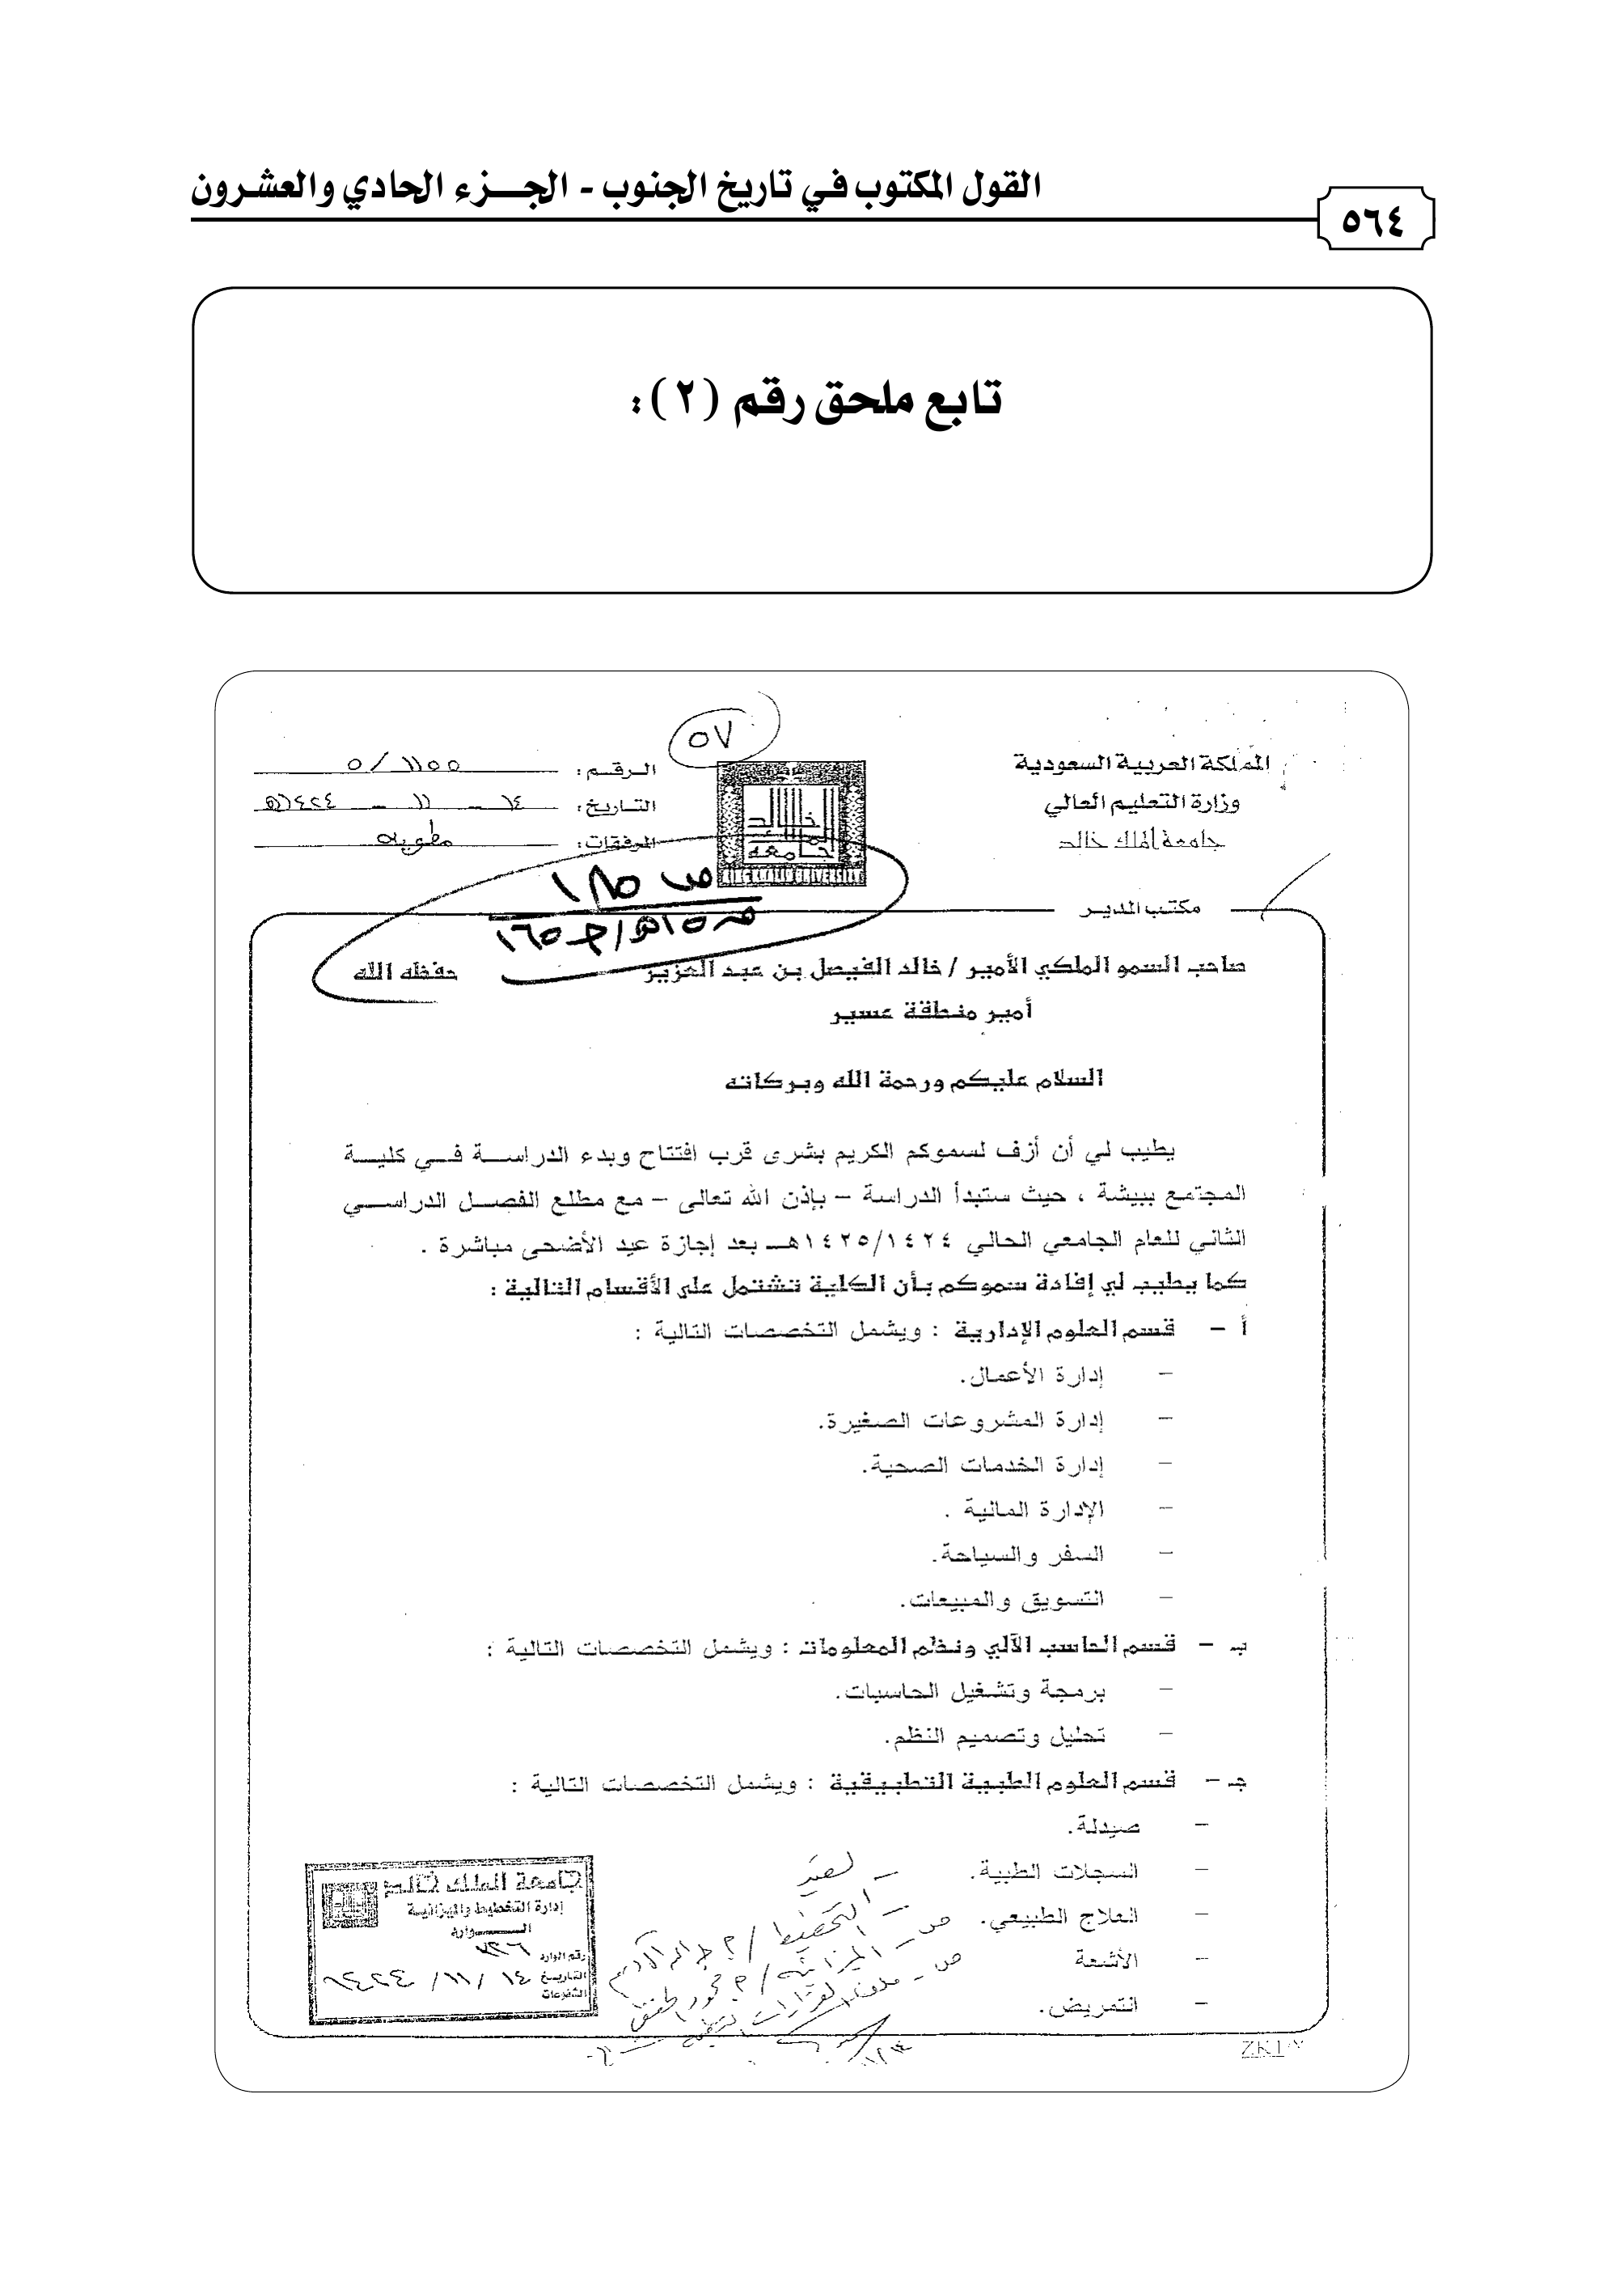 القول المكتوب في تاريخ الجنوب - الجـــزء الحادي والعشرون
٥٦٤
تابع ملحق رقم (٢):
٥٧
المملكة العربية السعودية
وزارة التعليم العالي
جامعة الملك خالد
مكتب المدير
الرقم: ٥/١١٥٥
التاريخ: ١٤ - ١١ - ١٤٢٤هـ
المرفقات:
KING KHALID UNIVERSITY
صاحب السمو الملكي الأمير / خالد الفيصل بن عبد العزيز حفظه الله
أمير منطقة عسير
السلام عليكم ورحمة الله وبركاته
يطيب لي أن أزف لسموكم الكريم بشرى قرب افتتاح وبدء الدراسة في كلية
المجتمع ببيشة ، حيث ستبدأ الدراسة – بإذن الله تعالى – مع مطلع الفصل الدراسي
الثاني للعام الجامعي الحالي ١٤٢٥/١٤٢٤هـ بعد إجازة عيد الأضحى مباشرة .
كما يطيب لي إفادة سموكم بأن الكلية تشتمل على الأقسام التالية :
أ – قسم العلوم الإدارية : ويشمل التخصصات التالية :
– إدارة الأعمال.
– إدارة المشروعات الصغيرة.
– إدارة الخدمات الصحية.
– الإدارة المالية .
– السفر والسياحة.
– التسويق والمبيعات.
ب – قسم الحاسب الآلي ونظم المعلومات : ويشمل التخصصات التالية :
– برمجة وتشغيل الحاسبات.
– تحليل وتصميم النظم.
جـ – قسم العلوم الطبية التطبيقية : ويشمل التخصصات التالية :
– صيدلة.
– السجلات الطبية.
– العلاج الطبيعي.
– الأشعة
– التمريض.
جامعة الملك خالد
إدارة التخطيط والميزانية
الـــواردة
رقم الوارد
التاريخ ١٤ / ١١ / ١٤٢٤